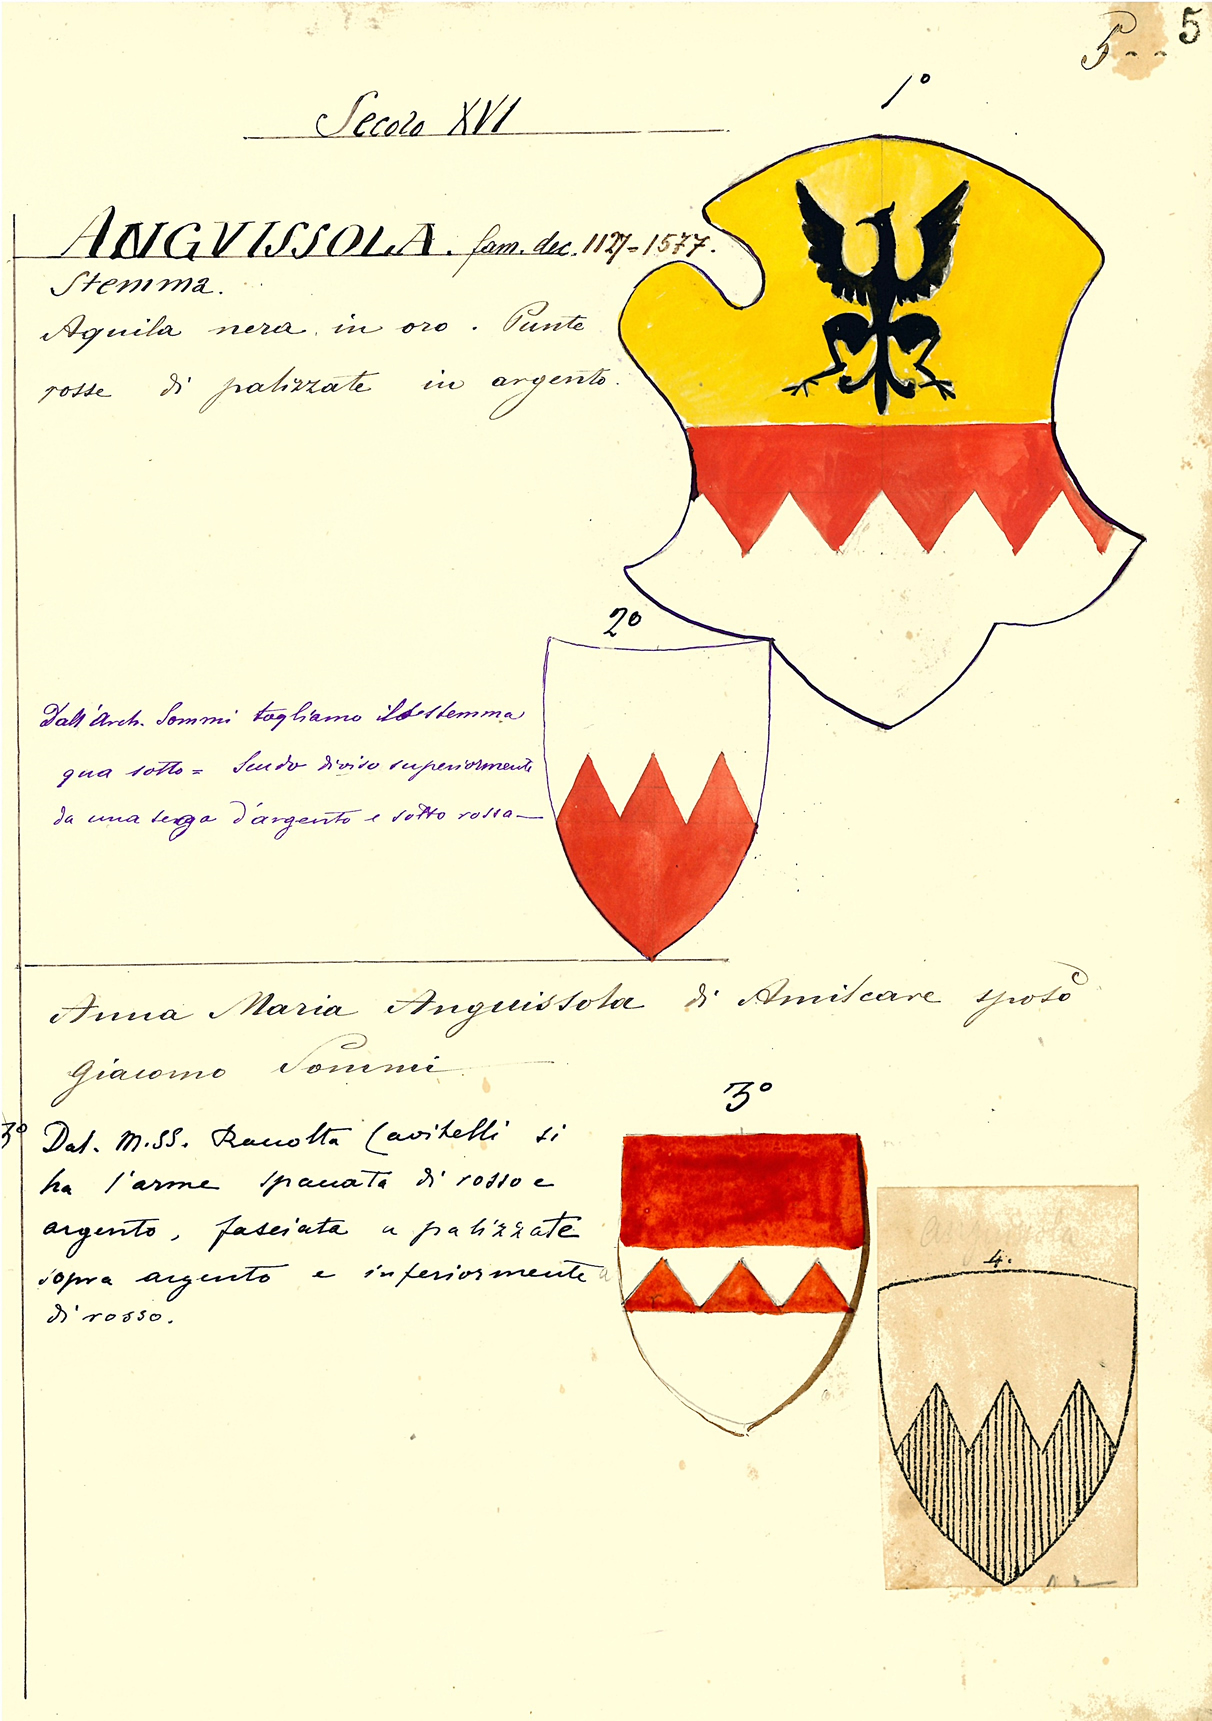 5
5
1º
Secolo XVI
ANGVISSOLA. fam. dec. 1127=1577.
Stemma.
Aquila nera in oro. Punte
rosse di palizzate in argento.
2º
Dall'Arch. Sommi togliamo stemma
qua sotto = Scudo diviso superiormente
da una sega d'argento e sotto rossa
Anna Maria Anguissola di Amilcare sposò
Giacomo Sommi
3º
3º Dal. M.SS. Racolta Cavitelli si
ha l'arme spacata di rosso e
argento, fasciata a palizzate
sopra argento e inferiormente
di rosso.
4.